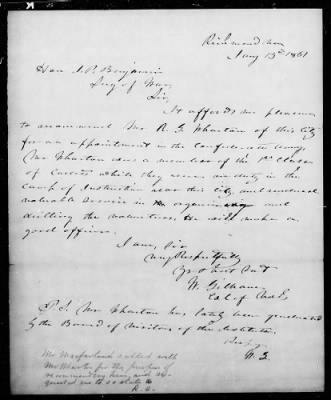 Richmond
Jany 13th 1861
Hon J. P. Benjamin
Secy of War,
Sir,
It affords me pleasure
to recommend Mr R. G. Wharton of this city
for an appointment in the Confederate Army.
Mr Wharton was a member of the 1st Class
of Cadets while they were on duty in the
Camp of Instruction near this city and rendered
valuable service in organizing and
drilling the volunteers. He will make a
good officer.
I am, Sir
very Respectfully
Yr Obt Svt
W. Gilham
Col of
P.S. Mr Wharton has lately been graduated
by the Board of Visitors of the Institute.
Respy
W. G.
Mr Macfarland called with
Mr Wharton for the purpose of
recommending him, and re-
quested me to so state it